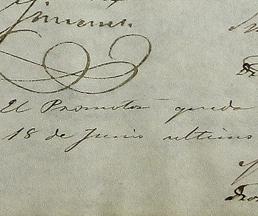 Gimenez.
El Promotor queda
18 de Junio ultimo